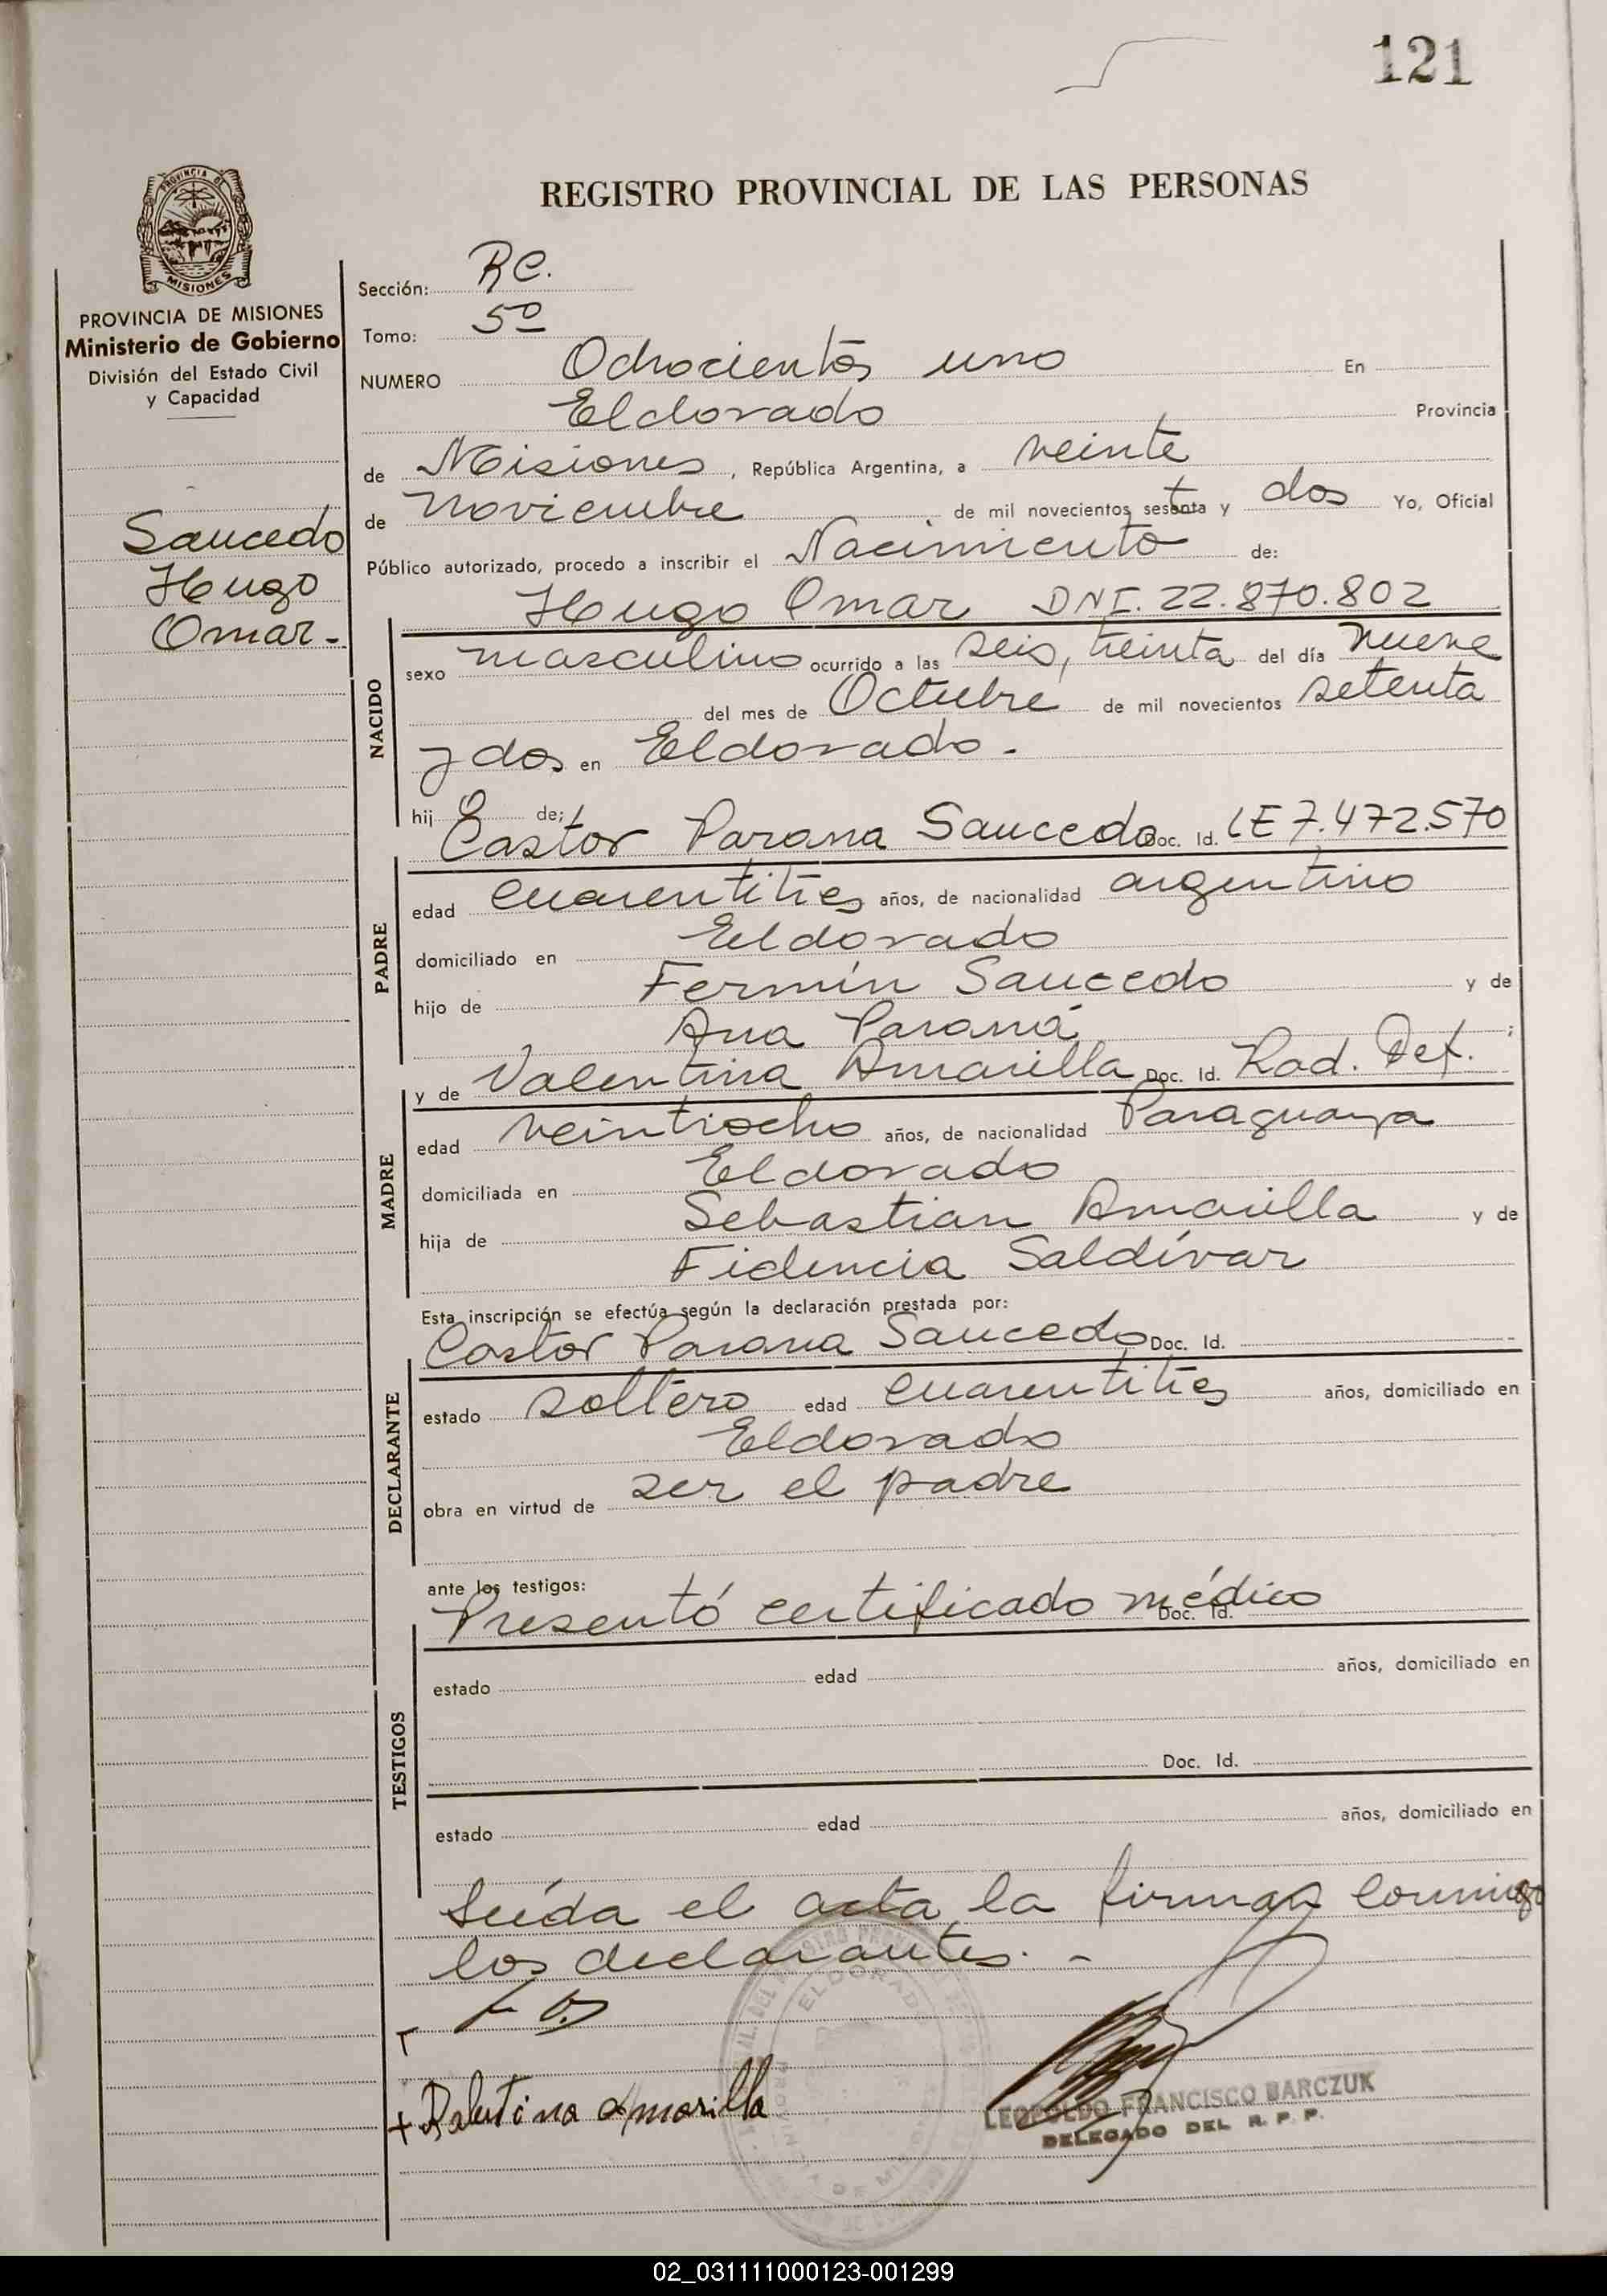 121
REGISTRO PROVINCIAL DE LAS PERSONAS
PROVINCIA DE
MISIONES
PROVINCIA DE MISIONES
Ministerio de Gobierno
División del Estado Civil
y Capacidad
Saucedo
Hugo
Omar.-
Sección: RC.
Tomo: 5º
NUMERO Ochocientos uno En
Eldorado Provincia
de Misiones, República Argentina, a veinte
de Noviembre de mil novecientos setenta y dos Yo, Oficial
Público autorizado, procedo a inscribir el Nacimiento de:
Hugo Omar DNI. 22.870.802
NACIDO
sexo masculino ocurrido a las seis, treinta del día nueve
del mes de Octubre de mil novecientos setenta
y dos en Eldorado.
hijo de;
Castor Parana Saucedo Doc. Id. LE 7.472.570
PADRE
edad cuarentitres años, de nacionalidad argentino
domiciliado en Eldorado
hijo de Fermín Saucedo y de
Ana Paraná ;
y de Valentina Amarilla Doc. Id. Rad. Def.
MADRE
edad veintiocho años, de nacionalidad Paraguaya
domiciliada en Eldorado
hija de Sebastian Amarilla y de
Fidencia Saldívar
Esta inscripción se efectúa según la declaración prestada por:
Castor Parana Saucedo Doc. Id.
DECLARANTE
estado soltero edad cuarentitres años, domiciliado en
Eldorado
obra en virtud de ser el padre
ante los testigos:
Presentó certificado médico Doc. Id.
TESTIGOS
estado edad años, domiciliado en
Doc. Id.
estado edad años, domiciliado en
Leída el acta la firman conmigo
los declarantes. -
ELDORADO
+ Balutina Amarilla
LEOPOLDO FRANCISCO BARCZUK
DELEGADO DEL R. P. P.
02_031111000123-001299